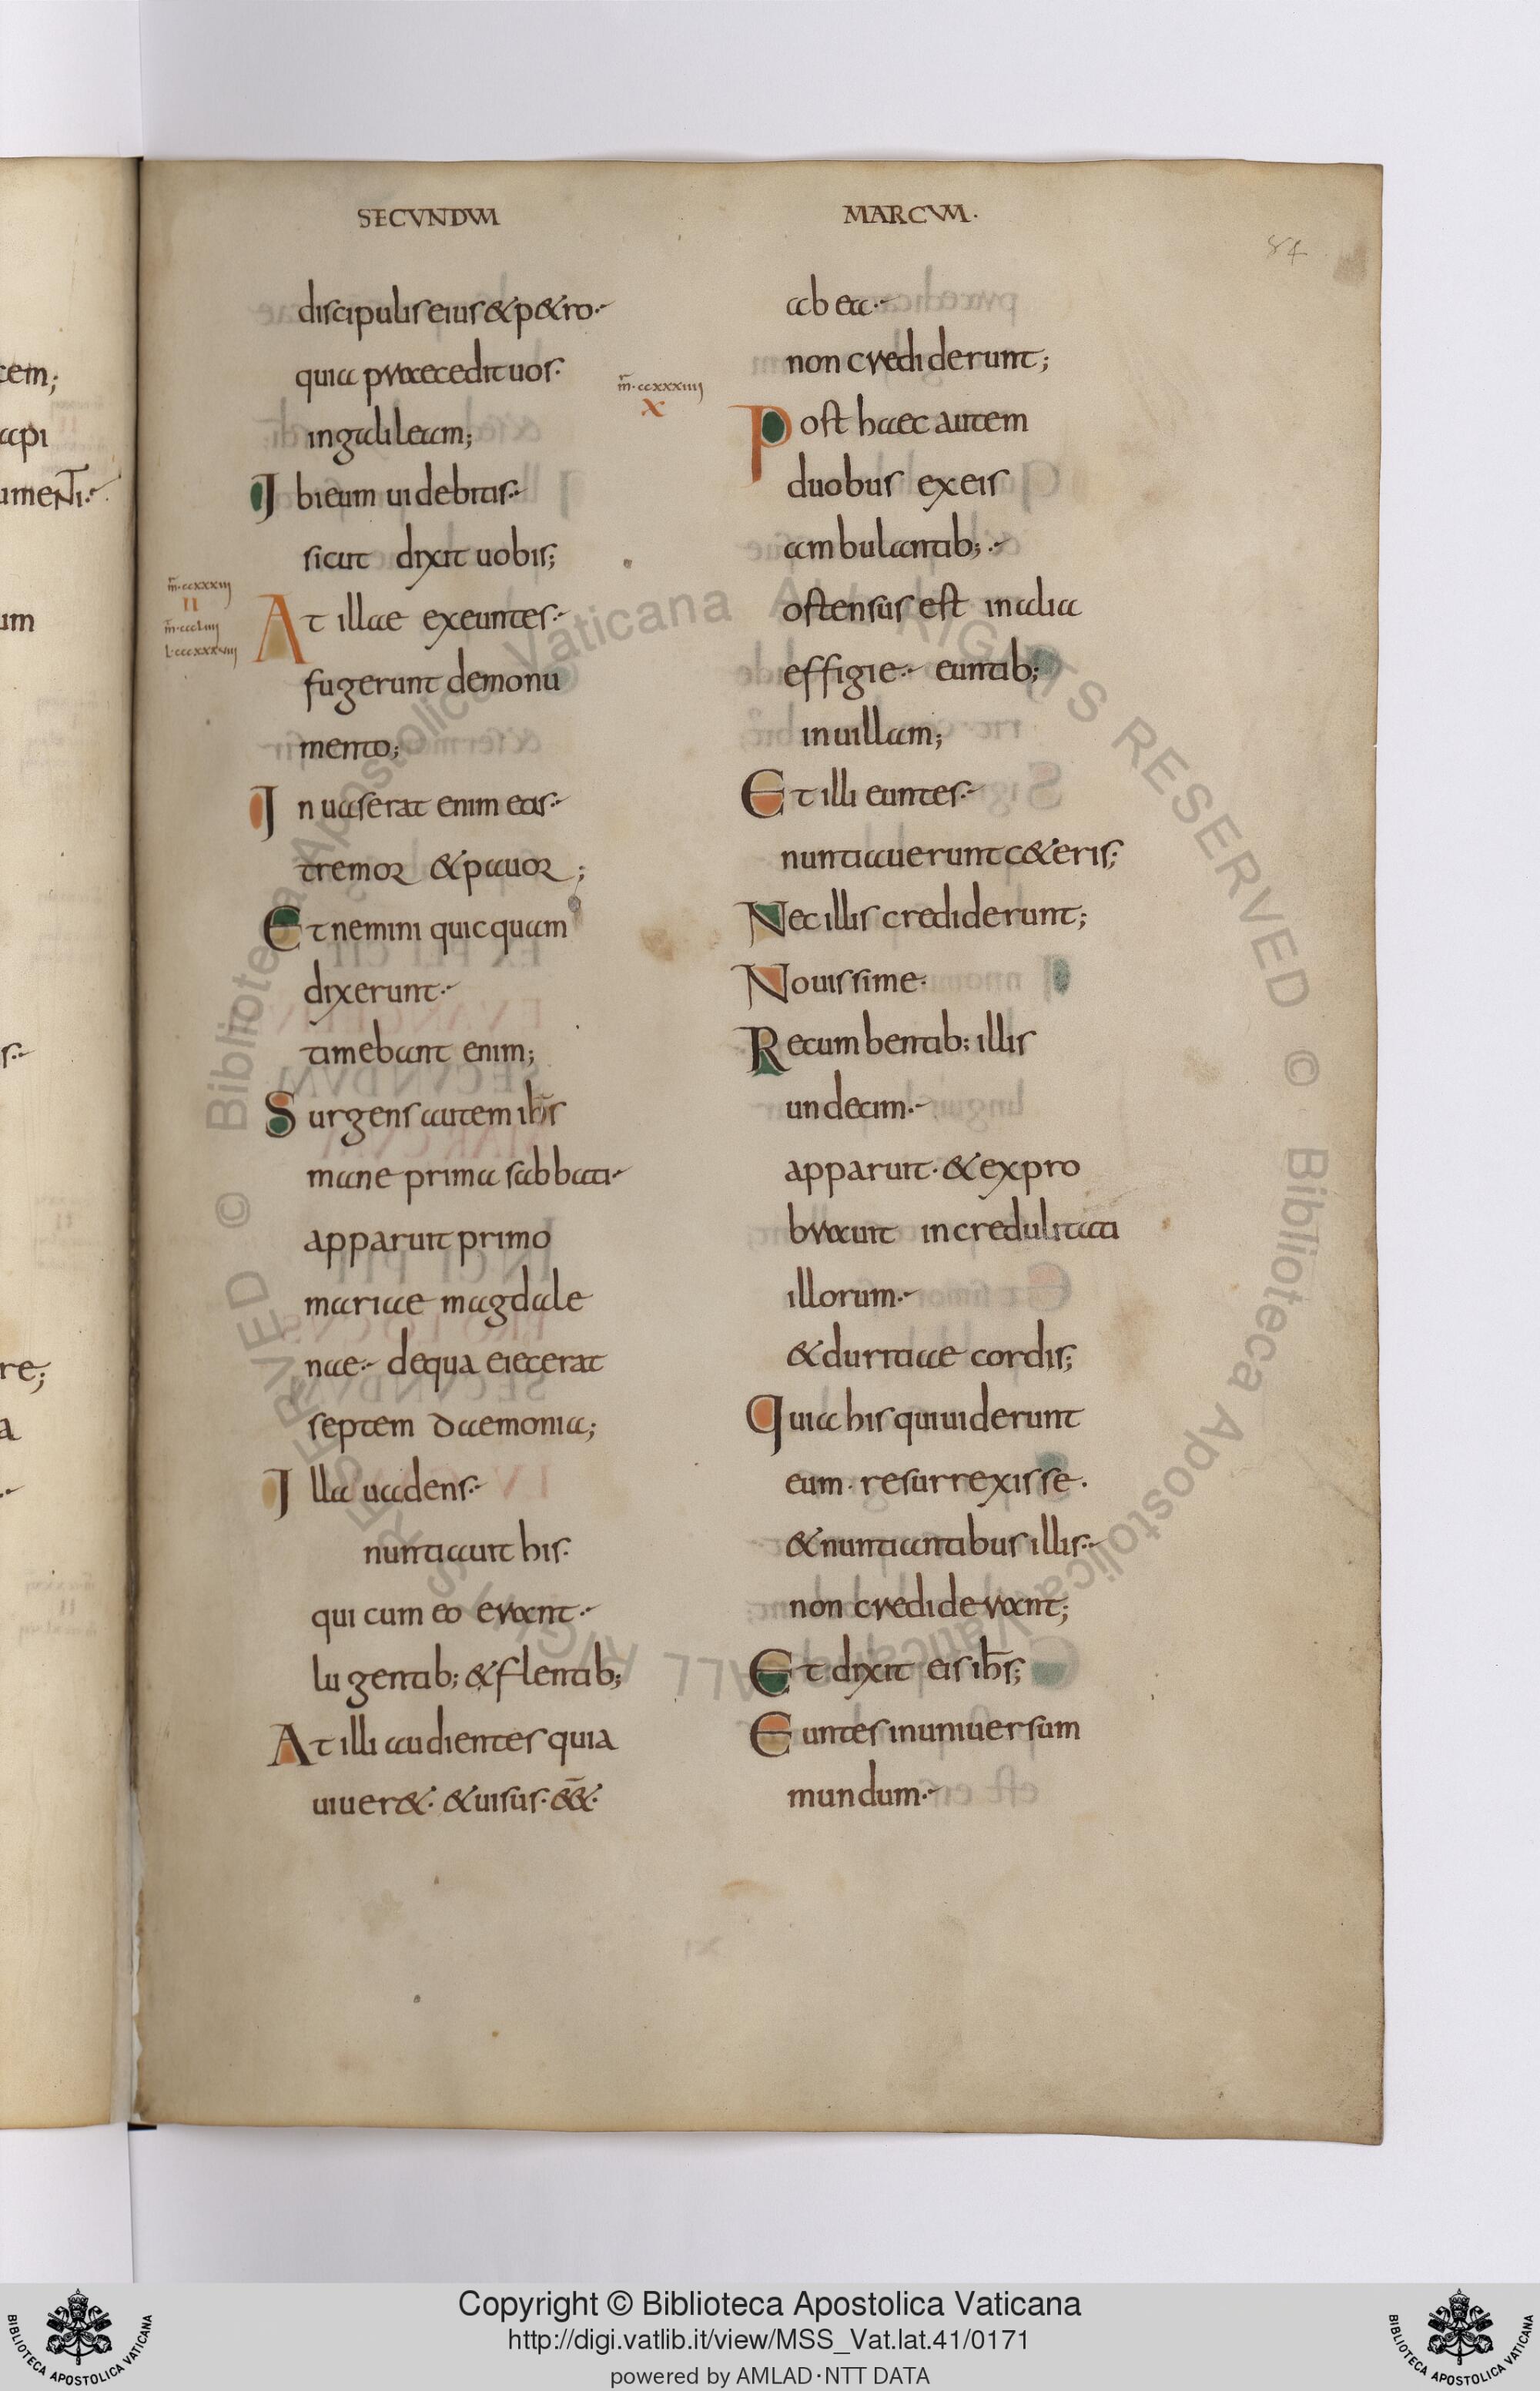 SECVNDVM
MARCVM.
84
discipulis eius & p&ro
quia praecedit uos.
in galileam;
Ibi eum uidebitis
sicut dixit uobis;
m̄.ccxxxiii
II
m̄.cccliiii
l.cccxxxviii
At illae exeuntes
fugerunt demonu
mento;
Inuaserat enim eas
tremor & pauor;
Et nemini quicquam
dixerunt
timebant enim;
Surgens autem ih̄s
mane prima sabbati
apparuit primo
mariae magdale
nae dequa eiecerat
septem daemonia;
Illa uadens
nuntiauit his.
qui cum eo erant
lugentib; & flentib;
At illi audientes quia
uiuer&. & uisus. ēē&.
m̄.ccxxxiiii
X
ab ea
non crediderunt;
Post haec autem
duobus ex eis
ambulantib;
ostensus est in alia
effigie euntib;
in uillam;
Et illi euntes
nuntiauerunt c&eris;
Nec illis crediderunt;
Nouissime.
Recumbentib: illis
undecim
apparuit. & expro
brauit incredulitati
illorum
& duritiae cordis;
Quia his qui uiderunt
eum. resurrexisse.
& nuntiantibus illis
non crediderant;
Et dixit eis ih̄s;
Euntes in uniuersum
mundum
Copyright © Biblioteca Apostolica Vaticana
http://digi.vatlib.it/view/MSS_Vat.lat.41/0171
powered by AMLAD·NTT DATA
BIBLIOTECA APOSTOLICA VATICANA
BIBLIOTECA APOSTOLICA VATICANA
© Biblioteca Apostolica Vaticana ALL RIGHTS RESERVED © Biblioteca Apostolica Vaticana ALL RIGHTS RESERVED